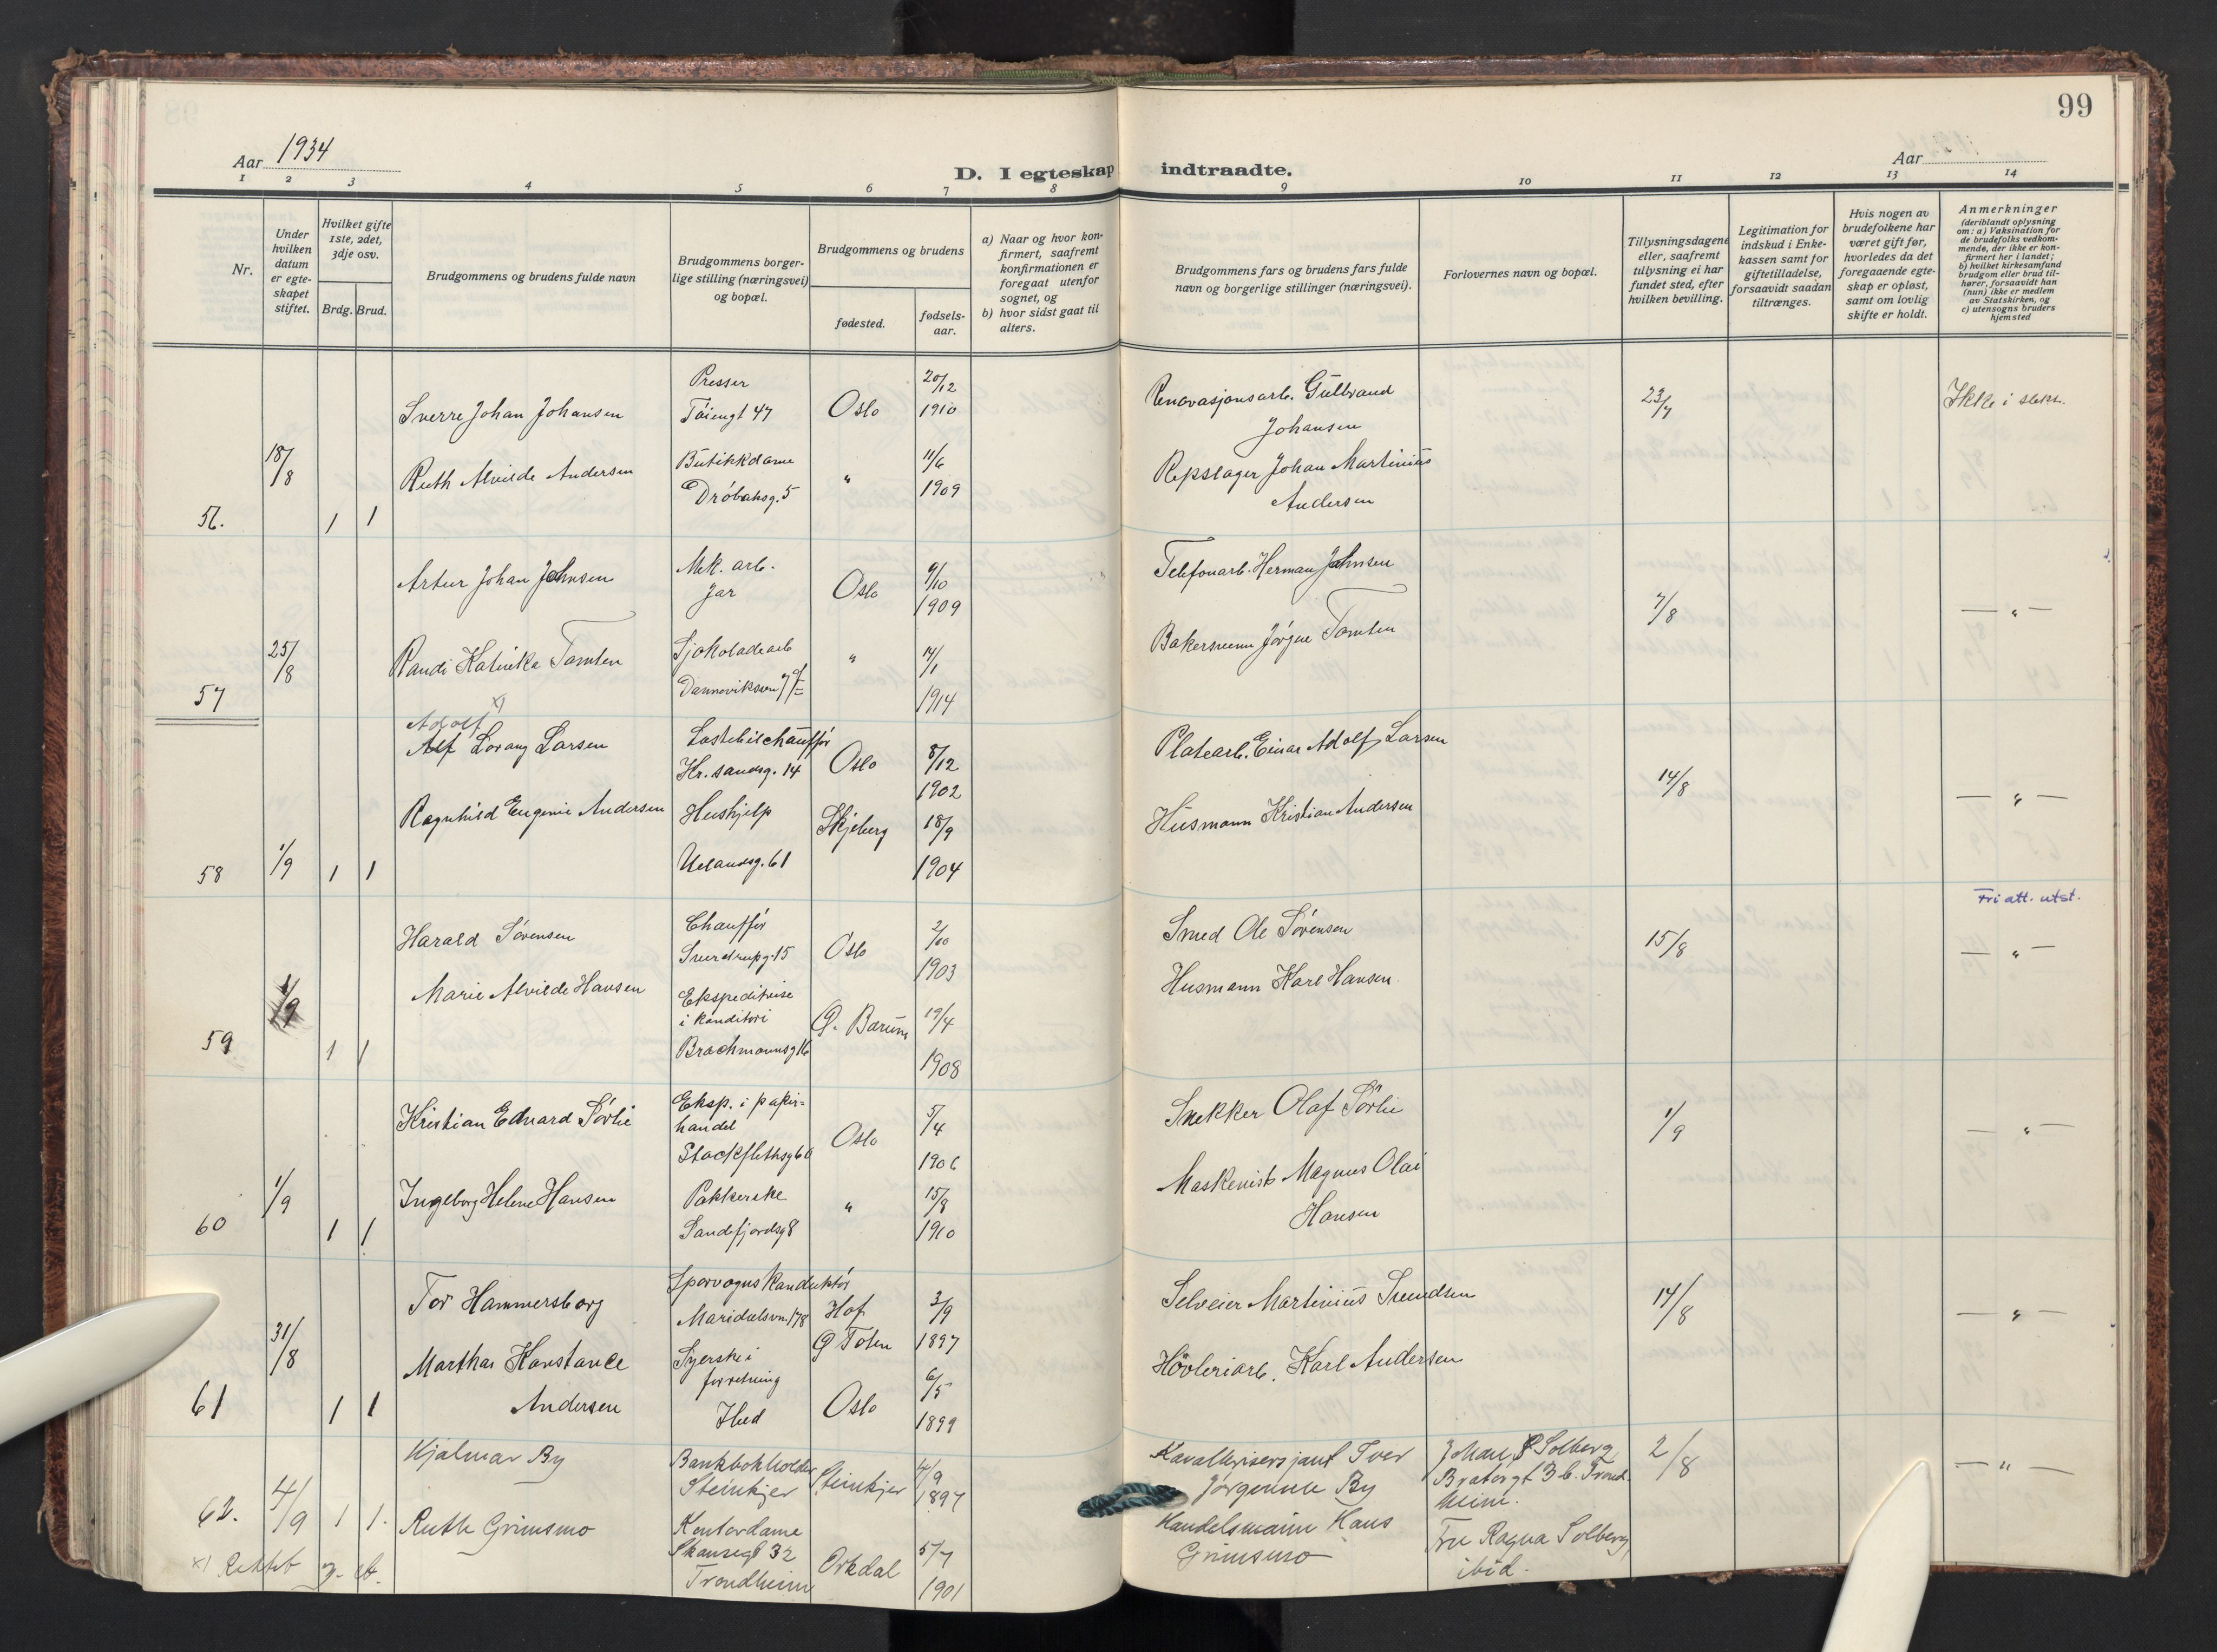 99
Aar 1934
Aar
D. I egteskap indtraadte.
1 2 3 4 5 6 7 8 9 10 11 12 13 14
Nr.
Under
hvilken
datum
er egte-
skapet
stiftet.
Hvilket gifte
1ste, 2det,
3dje osv.
Brdg. Brud.
Brudgommens og brudens fulde navn
Brudgommens borger-
lige stilling (næringsvei)
og bopæl.
Brudgommens og brudens
fødested.
fødsels-
aar.
a) Naar og hvor kon-
firmert, saafremt
konfirmationen er
foregaat utenfor
sognet, og
b) hvor sidst gaat til
alters.
Brudgommens fars og brudens fars fulde
navn og borgerlige stillinger (næringsvei).
Forlovernes navn og bopæl.
Tillysningsdagene
eller, saafremt
tillysning ei har
fundet sted, efter
hvilken bevilling.
Legitimation for
indskud i Enke-
kassen samt for
giftetilladelse,
forsaavidt saadan
tiltrænges.
Hvis nogen av
brudefolkene har
været gift før,
hvorledes da det
foregaaende egte-
skap er opløst,
samt om lovlig
skifte er holdt.
Anmerkninger
(deriblandt oplysning
om: a) Vaksination for
de brudefolks vedkom-
mende, der ikke er kon-
firmert her i landet;
b) hvilket kirkesamfund
brudgom eller brud til-
hører, forsaavidt han
(hun) ikke er medlem
av Statskirken, og
c) utensogns bruders
hjemsted
56. 18/8 1 1
Sverre Johan Johansen
Presser
Tøiengt 47
Oslo
20/12
1910
Renovasjonsarb. Gulbrand
Johansen
23/7
Ikke i slekt.
Ruth Alvilde Andersen
Butikkdame
Drøbaksg. 5
"
11/6
1909
Repslager Johan Martinius
Andersen
57 25/8
Artur Johan Johnsen
Mek. arb.
Jar
Oslo
9/10
1909
Telefonarb. Herman Johnsen
7/8
— " —
Randi Katinka Tomten
Sjokoladearb
Danneviksvn 7
"
14/1
1914
Bakersvenn Jørgen Tomten
58 1/9 1 1
Adolf x)
Alf Lorang Larsen
Lastebilchauffør
Kr.sandsg. 14
Oslo
8/12
1902
Platearb. Einar Adolf Larsen
14/8
— " —
Ragnhild Eugenie Andersen
Hushjelp
Uelandsg. 61
Skjeberg
18/9
1904
Husmann Kristian Andersen
Fri att. utst.
59 1/9 1 1
Harald Sørensen
Chauffør
Sverdrupg. 15
Oslo
2/10
1903
Smed Ole Sørensen
15/8
— " —
Marie Alvilde Hansen
Ekspeditrise
i konditori
Brochmannsg 16
Ø. Bærum
19/4
1908
Husmann Karl Hansen
60 1/9 1 1
Kristian Edvard Sørlie
Eksp. i papir=
handel
Stockflethsg 60
Oslo
5/4
1906
Snekker Olaf Sørlie
1/9
— " —
Ingeborg Helene Hansen
Pakkerske
Sandefjordsg 8
"
15/8
1910
Maskinist Magnus Olai
Hansen
61 31/8 1 1
Tor Hammersborg
Sporvognskonduktør
Maridalsvn. 178
Hof
Ø Toten
3/9
1897
Selveier Martinius Svendsen
14/8
— " —
Marthar Konstance
Andersen
Syerske i
forretning
Ibid
Oslo
6/5
1899
Høvleriarb. Karl Andersen
62. 4/9 1 1.
Hjalmar By
Bankbokholder
Steinkjer
Steinkjer
4/9
1897
Kavallerisersjant Iver
Jørgensen By
Johan P Solberg
Bratørgt 3 b. Trond-
heim.
2/8
— " —
Ruth Grimsmo
Kontordame
Skansegt 32
Trondheim
Orkdal
5/7
1901
Handelsmann Hans
Grimsmo
Fru Ragna Solberg
ibid.
x) Rettet